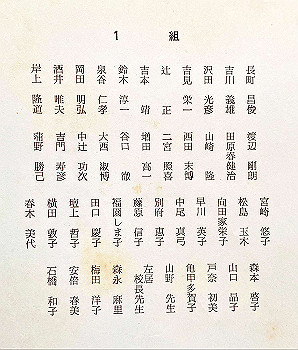 1 組
長町 昌俊
吉川 義雄
沢田 光彦
吉見 栄一
辻 正
吉本 靖
鈴木 淳一
泉谷 仁孝
岡田 明弘
酒井 唯夫
岸上 隆道
渡辺 剛朗
田原春健治
山崎 隆
西田 末博
二宮 照喜
増田 高一
谷口 徹
大西 淑博
中辻 功次
吉門 寿彦
蒲野 勝己
宮崎 悠子
松島 玉木
向田家栄子
早川 英子
中尾 真弓
別府 恵子
藤原 信子
福圓しま子
田口 慶子
壇上 哲子
横田 敦子
春木 美代
森本 啓子
山口 晶子
戸奈 初美
亀甲多賀子
山野 先生
左居 校長先生
森永 麻里
梅田 洋子
安倍 春美
石橋 和子